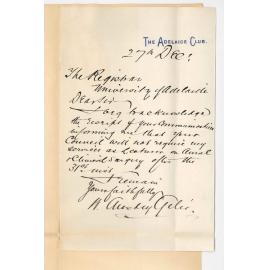 THE ADELAIDE CLUB.
27th Dec.
The Registrar
University of Adelaide
Dear Sir
I beg to acknowledge
the receipt of your Communication
informing me that your
Council will not require my
services as Lecturer on Aural
& Clinical Surgery after the
31st inst
I remain
Yours faithfully
W Anstey Giles.